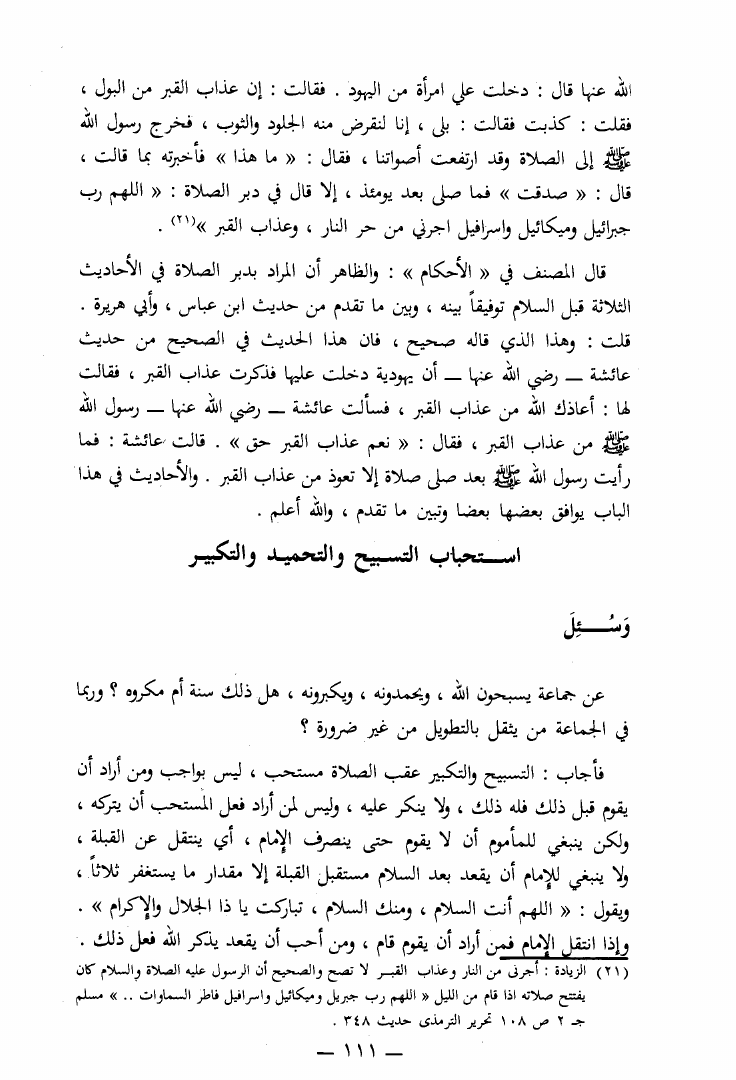 الله عنها قال : دخلت علي امرأة من اليهود . فقالت : إن عذاب القبر من البول ،
فقلت : كذبت فقالت : بلى ، إنا لنقرض منه الجلود والثوب ، فخرج رسول الله
ﷺ إلى الصلاة وقد ارتفعت أصواتنا ، فقال : « ما هذا » فأخبرته بما قالت ،
قال : « صدقت » فما صلى بعد يومئذ ، إلا قال في دبر الصلاة : « اللهم رب
جبرائيل وميكائيل واسرافيل اجرني من حر النار ، وعذاب القبر »(٢١) .
قال المصنف في « الأحكام » : والظاهر أن المراد بدبر الصلاة في الأحاديث
الثلاثة قبل السلام توفيقاً بينه ، وبين ما تقدم من حديث ابن عباس ، وأبي هريرة .
قلت : وهذا الذي قاله صحيح ، فان هذا الحديث في الصحيح من حديث
عائشة ــ رضي الله عنها ــ أن يهودية دخلت عليها فذكرت عذاب القبر ، فقالت
لها : أعاذك الله من عذاب القبر ، فسألت عائشة ــ رضي الله عنها ــ رسول الله
ﷺ من عذاب القبر ، فقال : « نعم عذاب القبر حق » . قالت عائشة : فما
رأيت رسول الله ﷺ بعد صلى صلاة إلا تعوذ من عذاب القبر . والأحاديث في هذا
الباب يوافق بعضها بعضا وتبين ما تقدم ، والله أعلم .
استحباب التسبيح والتحميد والتكبير
وَسُئِلَ
عن جماعة يسبحون الله ، ويحمدونه ، ويكبرونه ، هل ذلك سنة أم مكروه ؟ وربما
في الجماعة من يثقل بالتطويل من غير ضرورة ؟
فأجاب : التسبيح والتكبير عقب الصلاة مستحب ، ليس بواجب ومن أراد أن
يقوم قبل ذلك فله ذلك ، ولا ينكر عليه ، وليس لمن أراد فعل المستحب أن يتركه ،
ولكن ينبغي للمأموم أن لا يقوم حتى ينصرف الإمام ، أي ينتقل عن القبلة ،
ولا ينبغي للإمام أن يقعد بعد السلام مستقبل القبلة إلا مقدار ما يستغفر ثلاثاً ،
ويقول : « اللهم أنت السلام ، ومنك السلام ، تباركت يا ذا الجلال والإكرام » .
وإذا انتقل الإمام فمن أراد أن يقوم قام ، ومن أحب أن يقعد يذكر الله فعل ذلك .
(٢١) الزيادة : أجرنى من النار وعذاب القبر لا تصح والصحيح أن الرسول عليه الصلاة والسلام كان
يفتتح صلاته اذا قام من الليل « اللهم رب جبريل وميكائيل واسرافيل فاطر السماوات .. » مسلم
جـ ٢ ص ١٠٨ تحرير الترمذى حديث ٣٤٨ .
— ١١١ —